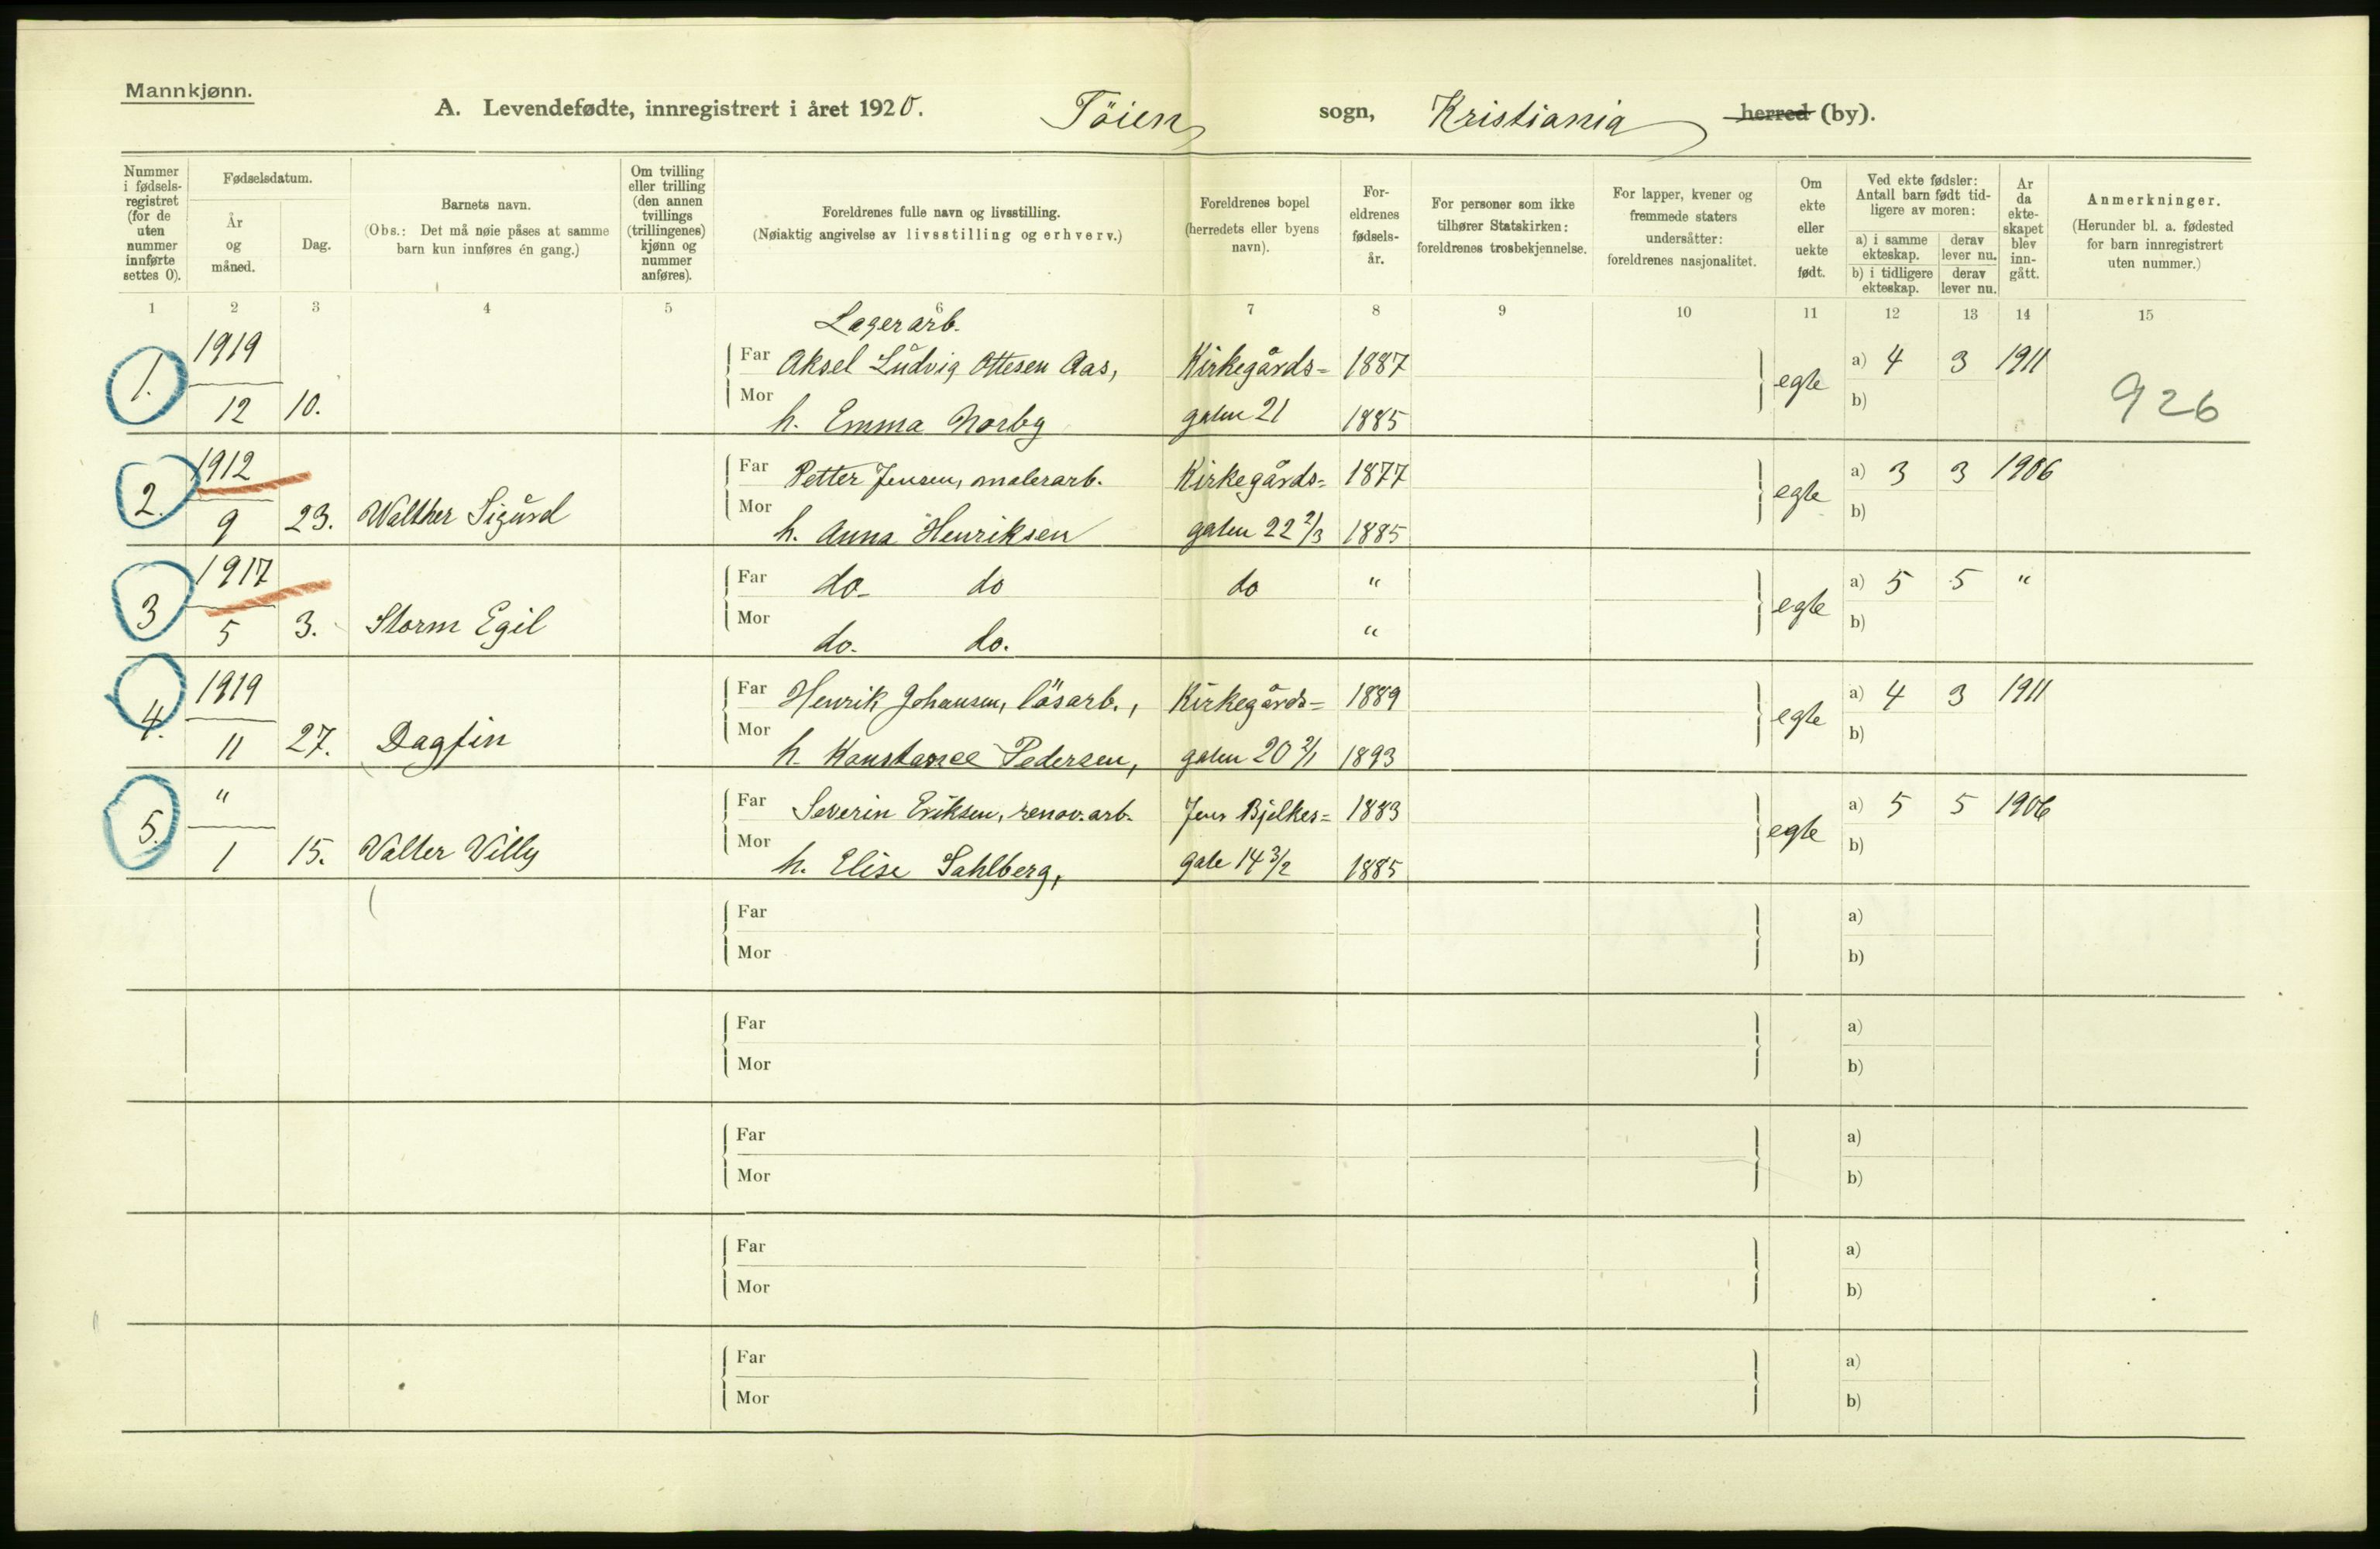 Mannkjønn.
A. Levendefødte, innregistrert i året 1920. Töien sogn, Kristiania herred (by).
Nummer i fødsels-registret (for de uten nummer innførte settes 0).
Fødselsdatum.
År og måned.
Dag.
Barnets navn.
(Obs.: Det må nøie påses at samme barn kun innføres én gang.)
Om tvilling eller trilling (den annen tvillings (trillingenes) kjønn og nummer anføres).
Foreldrenes fulle navn og livsstilling.
(Nøiaktig angivelse av livsstilling og erhverv.)
Foreldrenes bopel (herredets eller byens navn).
For-eldrenes fødsels-år.
For personer som ikke tilhører Statskirken: foreldrenes trosbekjennelse.
For lapper, kvener og fremmede staters undersåtter: foreldrenes nasjonalitet.
Om ekte eller uekte født.
Ved ekte fødsler: Antall barn født tid-ligere av moren:
a) i samme ekteskap.
derav lever nu.
b) i tidligere ekteskap.
derav lever nu.
År da ekte-skapet blev inn-gått.
Anmerkninger.
(Herunder bl. a. fødested for barn innregistrert uten nummer.)
1 2 3 4 5 6 7 8 9 10 11 12 13 14 15
Lagerarb.
1. 1919 Far Aksel Ludvig Ottesen Aas, Kirkegårds= 1887 egte a) 4 3 1911
12 10. Mor h. Emma Norby gaten 21 1885 b) 926
2. 1912 Far Petter Jensen, malerarb. Kirkegårds= 1877 egte a) 3 3 1906
9 23. Walther Sigurd Mor h. Anna Henriksen gaten 22 2/3 1885 b)
3 1917 Far do. do do " egte a) 5 5 "
5 3. Storm Egil Mor do. do. " b)
4. 1919 Far Henrik Johansen, lösarb., Kirkegårds= 1889 egte a) 4 3 1911
11 27. Dagfin Mor h. Konstance Pedersen, gaten 20 2/1 1893 b)
5. " Far Severin Eriksen, renov.arb. Jens Bjelkes= 1883 egte a) 5 5 1906
1 15. Valter Villy Mor h. Elise Sahlberg, gate 14 3/2 1885 b)
Far a)
Mor b)
Far a)
Mor b)
Far a)
Mor b)
Far a)
Mor b)
Far a)
Mor b)